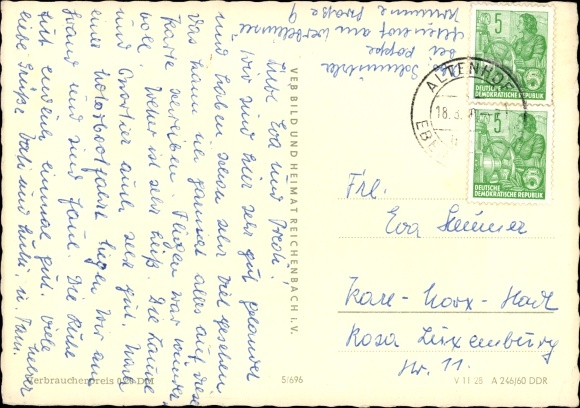 Schmidtke
bei Poppe
Altenhof am Werbellinsee
Krumme Straße 9
Liebe Eva und Presh!
Wir sind hier sehr gut gelandet
und haben schon sehr viel gesehen
das kann ich garnicht alles auf diese
Karte schreiben. Fliegen war wunder-
voll. Wetter ist sehr heiß. Die Laune
und Quartier auch sehr gut. Nach
eine Motorbootfahrt liegen wir am
Strand und sind faul. Die Ruhe
tut einen einmal gut. Viele
liebe Grüße
VEB BILD UND HEIMAT REICHENBACH I. V.
5
DEUTSCHE
DEMOKRATISCHE REPUBLIK
5
DEUTSCHE
DEMOKRATISCHE REPUBLIK
ALTENHOF
18.3.
EBE
Frl.
Eva
Karl-Marx-Stadt
Rosa Luxemburg
Nr. 11.
Verbraucherpreis 0,20 DM
5/696
V 11 28 A 246/60 DDR